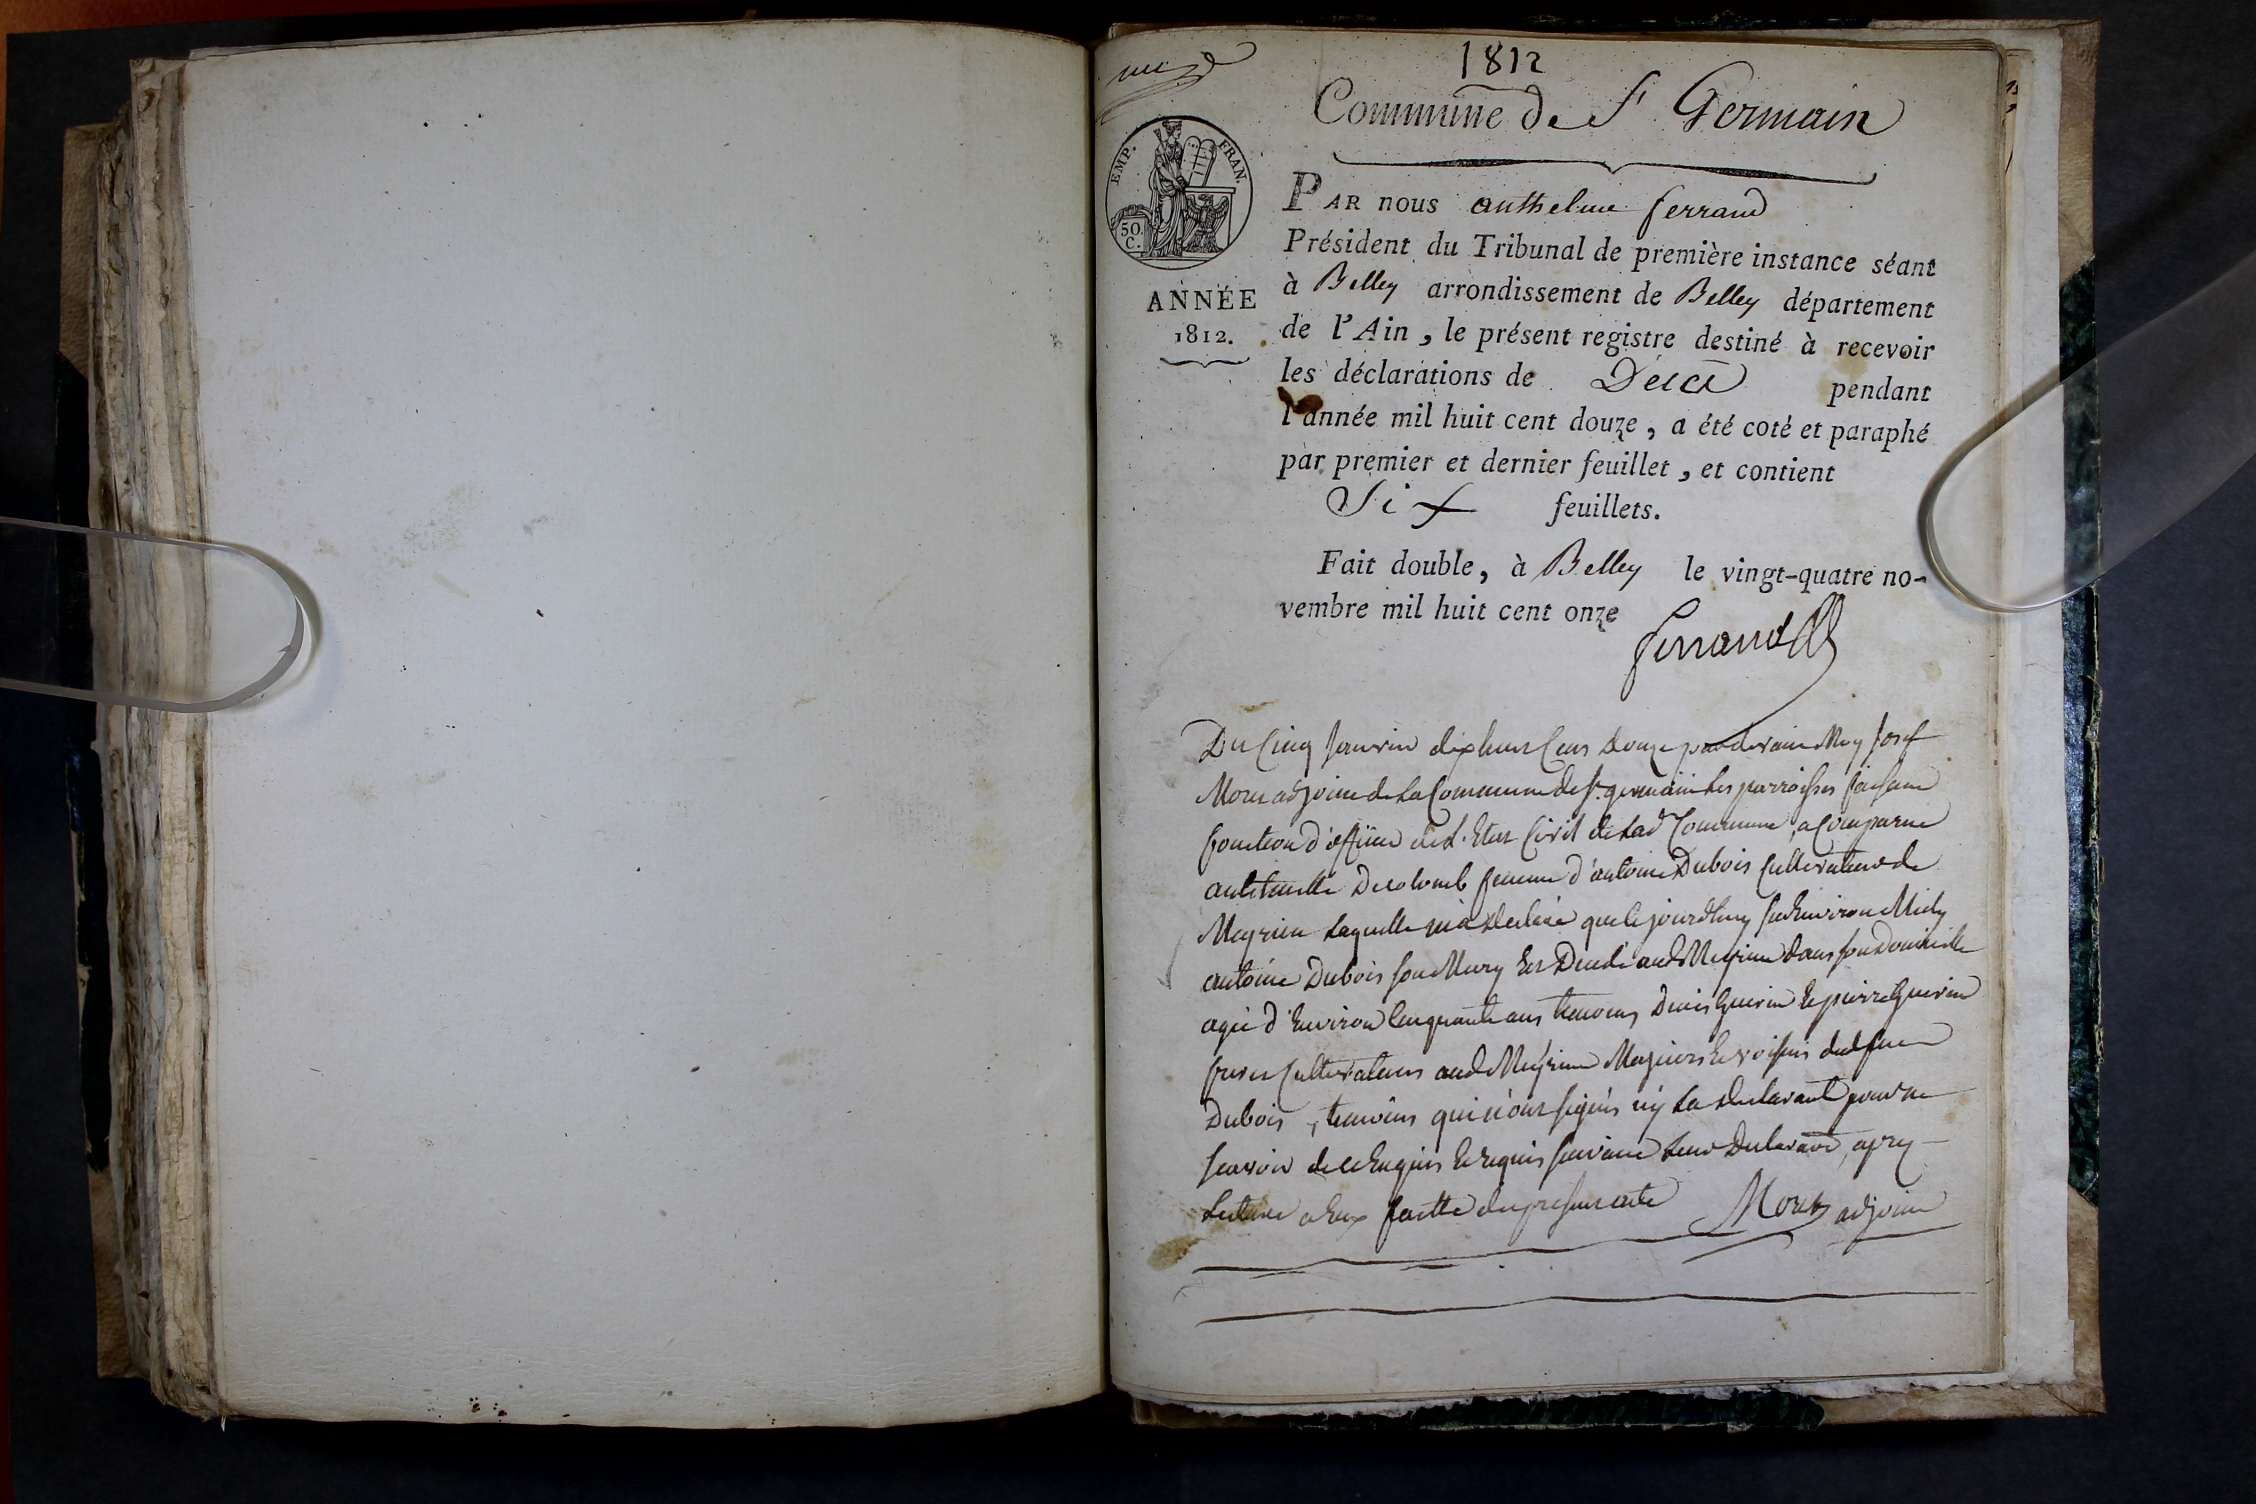 1812
Commune de St Germain
EMP. FRAN.
50.
C.
ANNÉE
1812.
PAR nous anthelme ferrand
Président du Tribunal de première instance séant
à Belley arrondissement de Belley département
de l'Ain, le présent registre destiné à recevoir
les déclarations de Décè pendant
l'année mil huit cent douze, a été coté et paraphé
par premier et dernier feuillet, et contient
Six feuillets.
Fait double, à Belley le vingt-quatre no-
vembre mil huit cent onze
ferrand
Du Cinq Janvier dixhuit Cens Douze pardevant Moy Josef
Moret adjoint de La Commune de St germain Les parroisses faisant
fonction d'officier de L'Etat Civil de Lad Commune, a Comparue
Decolomb femme d'antoine Dubois Cultivateur de
Meyrieu Laquelle m'a declaré que Cejourdhuy sur Environ Midy
antoine Dubois son Mary Est Decedé aud Meyrieu dans son Domicille
agé d'Environ Cinquante ans temoins Denis Guerin Et pierre Guerin
freres Cultivateurs aud Meyrieu Majeurs Et voisins dud feu
Dubois, temoins qui n'ont signés ny La declarante pour ne
scavoir de ce Enquis Et requis suivant Leur Declaration, apres
Lecture a Eux faitte du present acte Moret adjoint